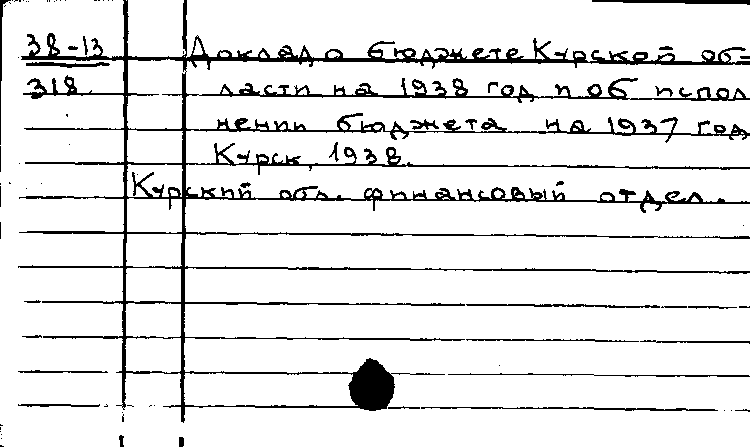 38-13 Доклад о бюджете Курской об=
318. ласти на 1938 год и об испол
нении бюджета на 1937 год
Курск, 1938.
Курский обл. финансовый отдел.